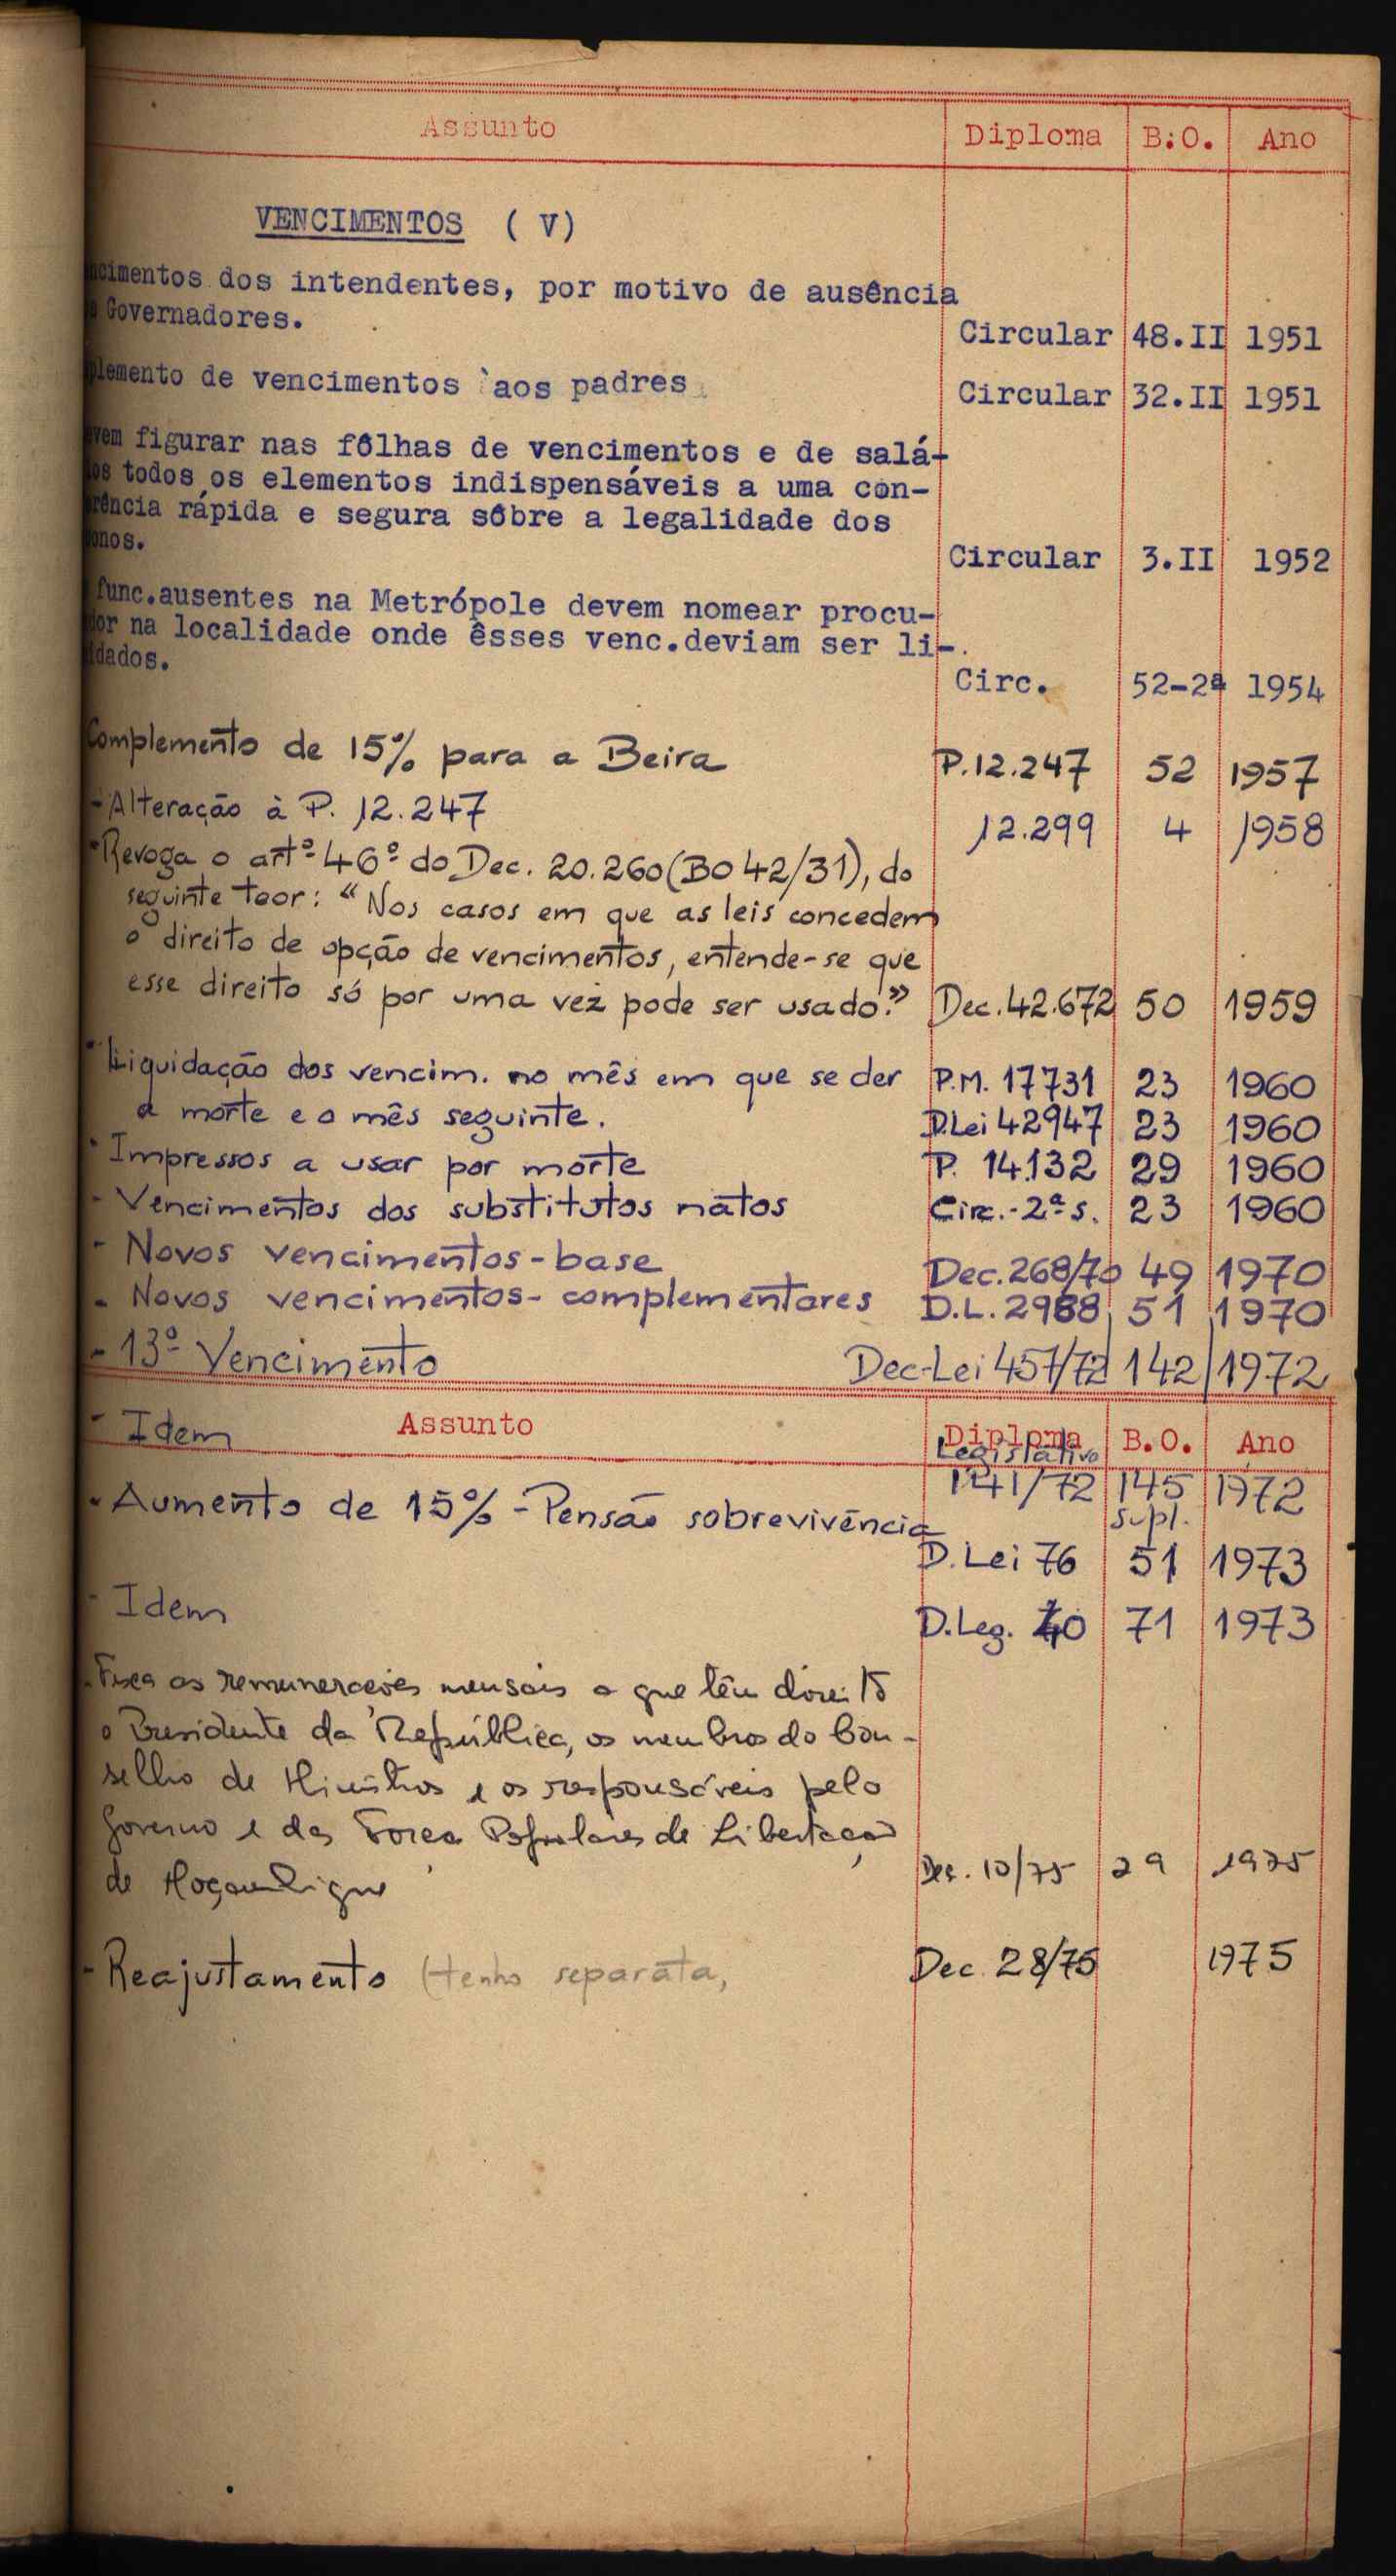 Assunto Diploma B.O. Ano
VENCIMENTOS ( V )
cimentos dos intendentes, por motivo de ausência
Governadores.
Circular 48.II 1951
plemento de vencimentos aos padres
Circular 32.II 1951
vem figurar nas fôlhas de vencimentos e de salá-
os todos os elementos indispensáveis a uma con-
rência rápida e segura sôbre a legalidade dos
onos.
Circular 3.II 1952
func.ausentes na Metrópole devem nomear procu-
dor na localidade onde êsses venc.deviam ser li-
dados.
Circ. 52-2ª 1954
Complemento de 15% para a Beira P.12.247 52 1957
- Alteração à P. 12.247 12.299 4 1958
- Revoga o artº 46º do Dec. 20.260 (BO 42/31), do
seguinte teor: "Nos casos em que as leis concedem
o direito de opção de vencimentos, entende-se que
esse direito só por uma vez pode ser usado." Dec. 42.672 50 1959
- Liquidação dos vencim. no mês em que se der P.M. 17731 23 1960
a morte e o mês seguinte. D.Lei 42947 23 1960
- Impressos a usar por morte P. 14.132 29 1960
- Vencimentos dos substitutos natos Circ.-2ª s. 23 1960
- Novos vencimentos-base Dec. 268/70 49 1970
- Novos vencimentos-complementares D.L. 2988 51 1970
- 13º Vencimento Dec-Lei 457/72 142 1972
Assunto Diploma B.O. Ano
- Idem Legislativo
141/72 145 1972
supl.
- Aumento de 15% - Pensão sobrevivência
D. Lei 76 51 1973
- Idem D.Leg. 40 71 1973
- Fixa as remunerações mensais a que têm direito
o Presidente da República, os membros do Con-
selho de Ministros e os responsáveis pelo
Governo e das Forças Populares de Libertação
de Moçambique Dec. 10/75 29 1975
- Reajustamento (tenho separata, Dec. 28/75 1975